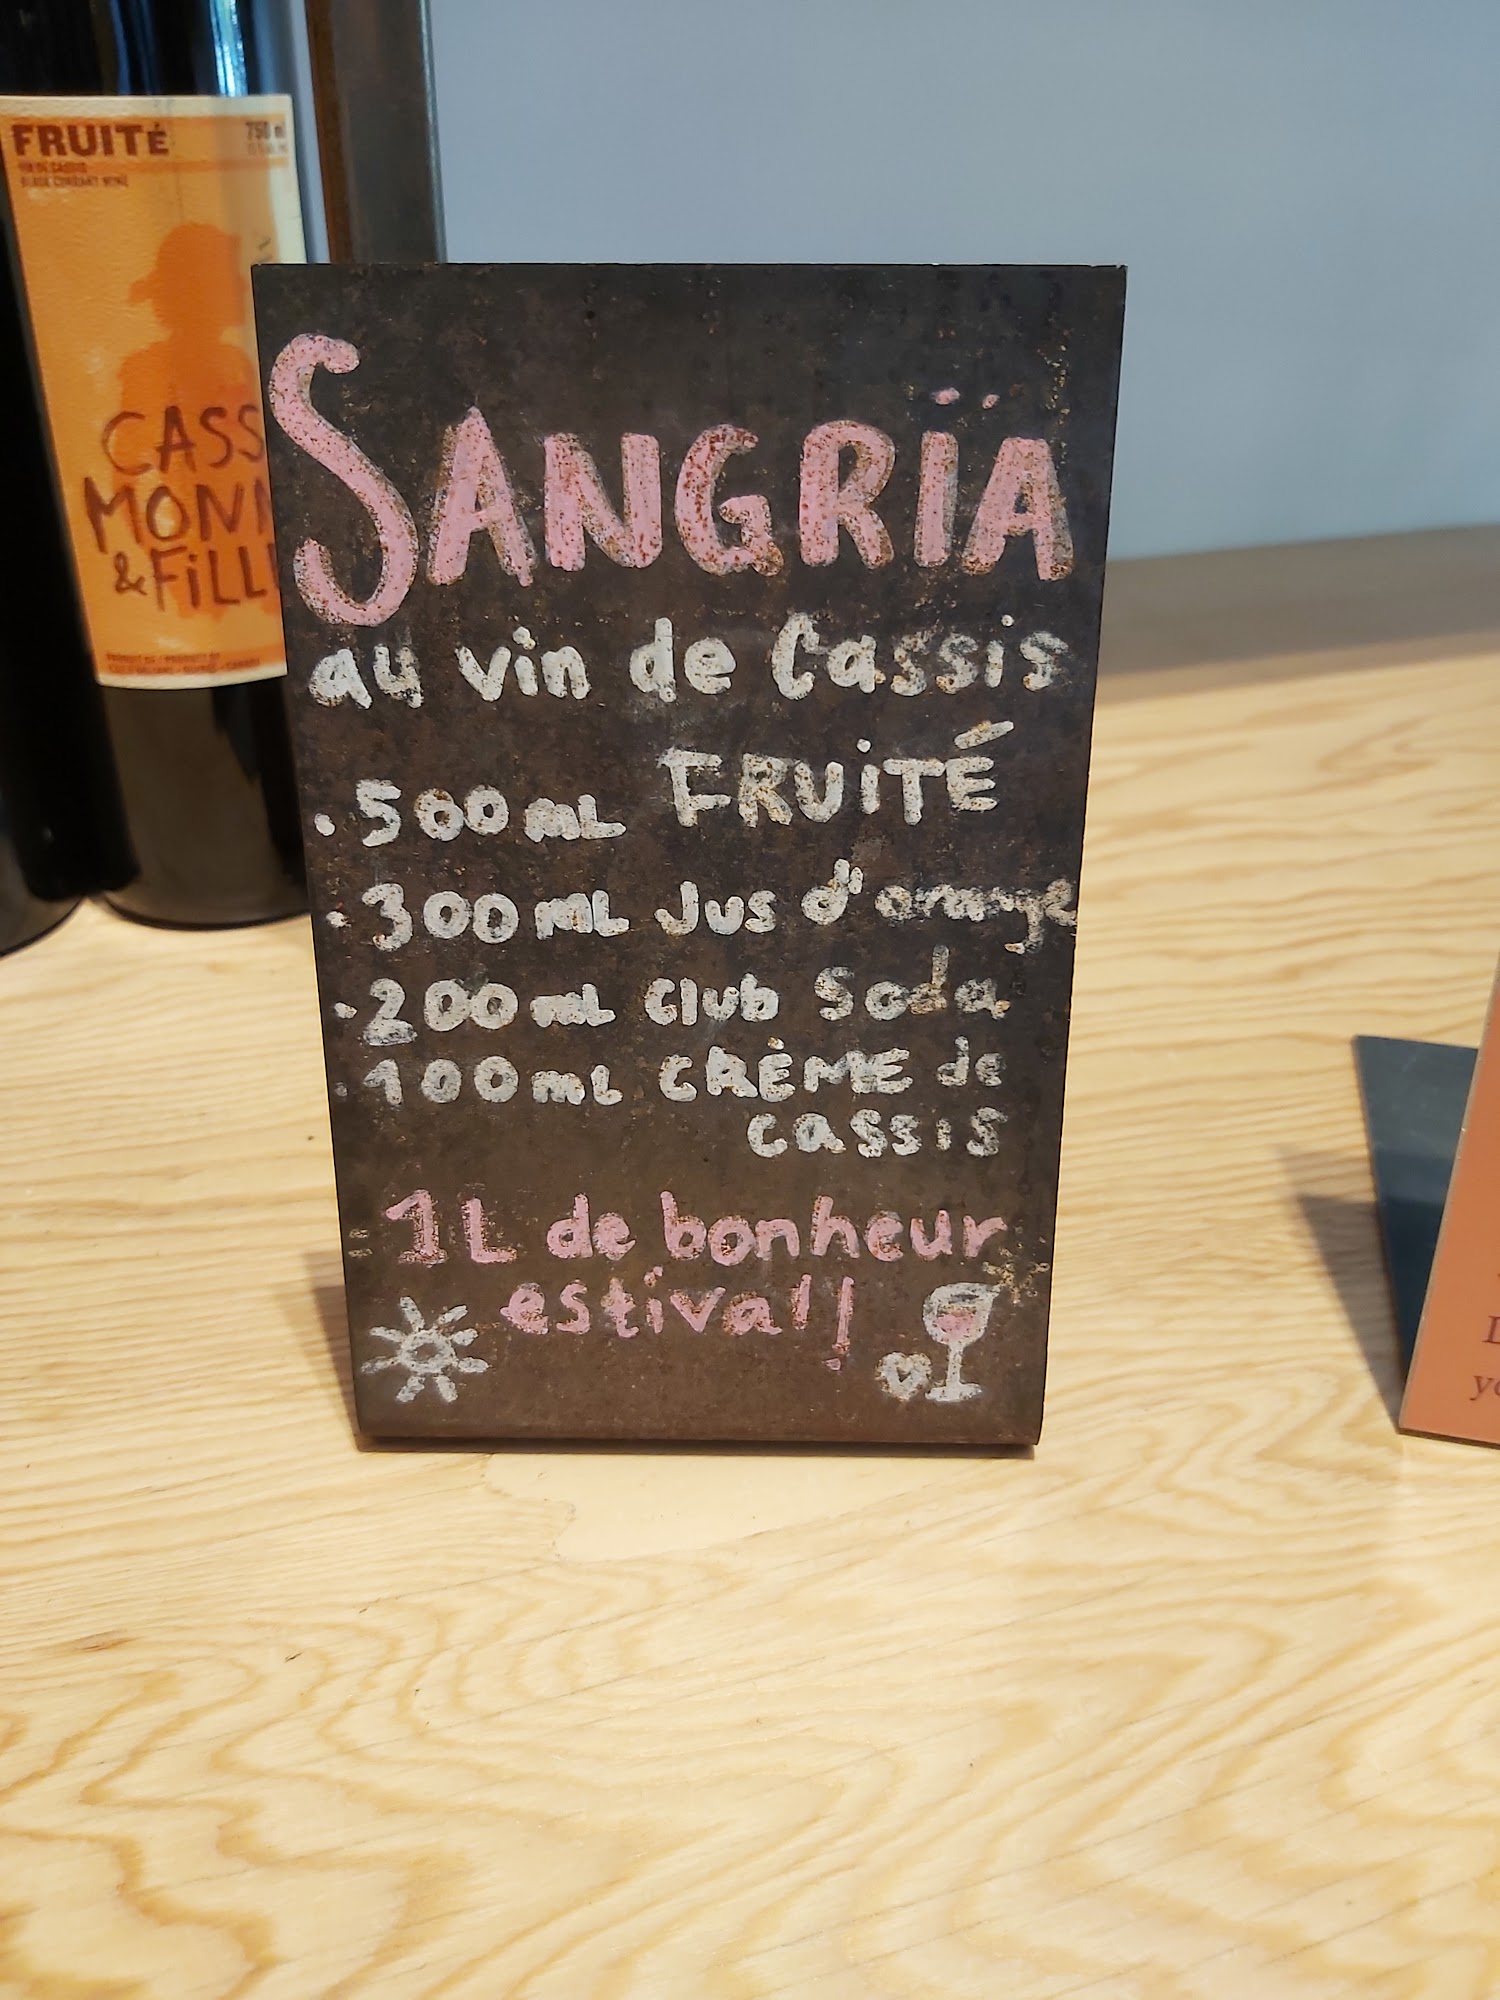 FRUITÉ
750 ml
VIN DE CASSIS
BLACK CURRANT WINE
CASS
MONN
& FiLL
SANGRÏA
au vin de Cassis
• 500 mL FRUITÉ
• 300 mL Jus d'orange
• 200 mL Club Soda
• 100 mL CRÈME de
cassis
= 1L de bonheur
estival!